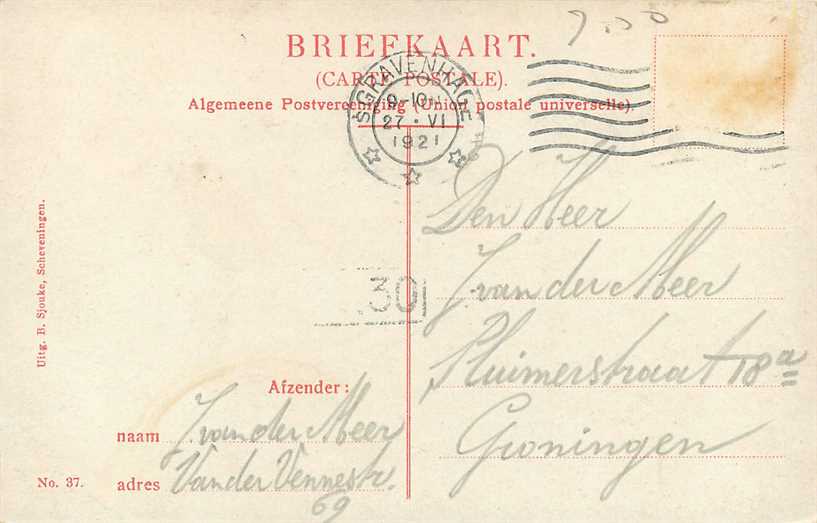 7.50
BRIEFKAART.
(CARTE POSTALE).
Algemeene Postvereeniging (Union postale universelle).
'SGRAVENHAGE
9-10V
27 · VI
1921
Den Heer
J. van der Meer
Pluimerstraat 18a
Groningen
30
Uitg. B. Sjouke, Scheveningen.
Afzender:
naam J. van der Meer
adres Van der Vennestr.
69
No. 37.